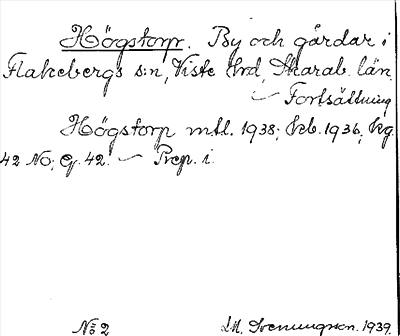 Högstorp. By och gårdar i
Flakebergs sn, Viste hrd, Skarab. län
— Fortsättning
Högstorp mtl. 1938; kb. 1936; kg.
42 NO; G. 42. — Prep. i.
No 2 M. Svenungsson. 1939.